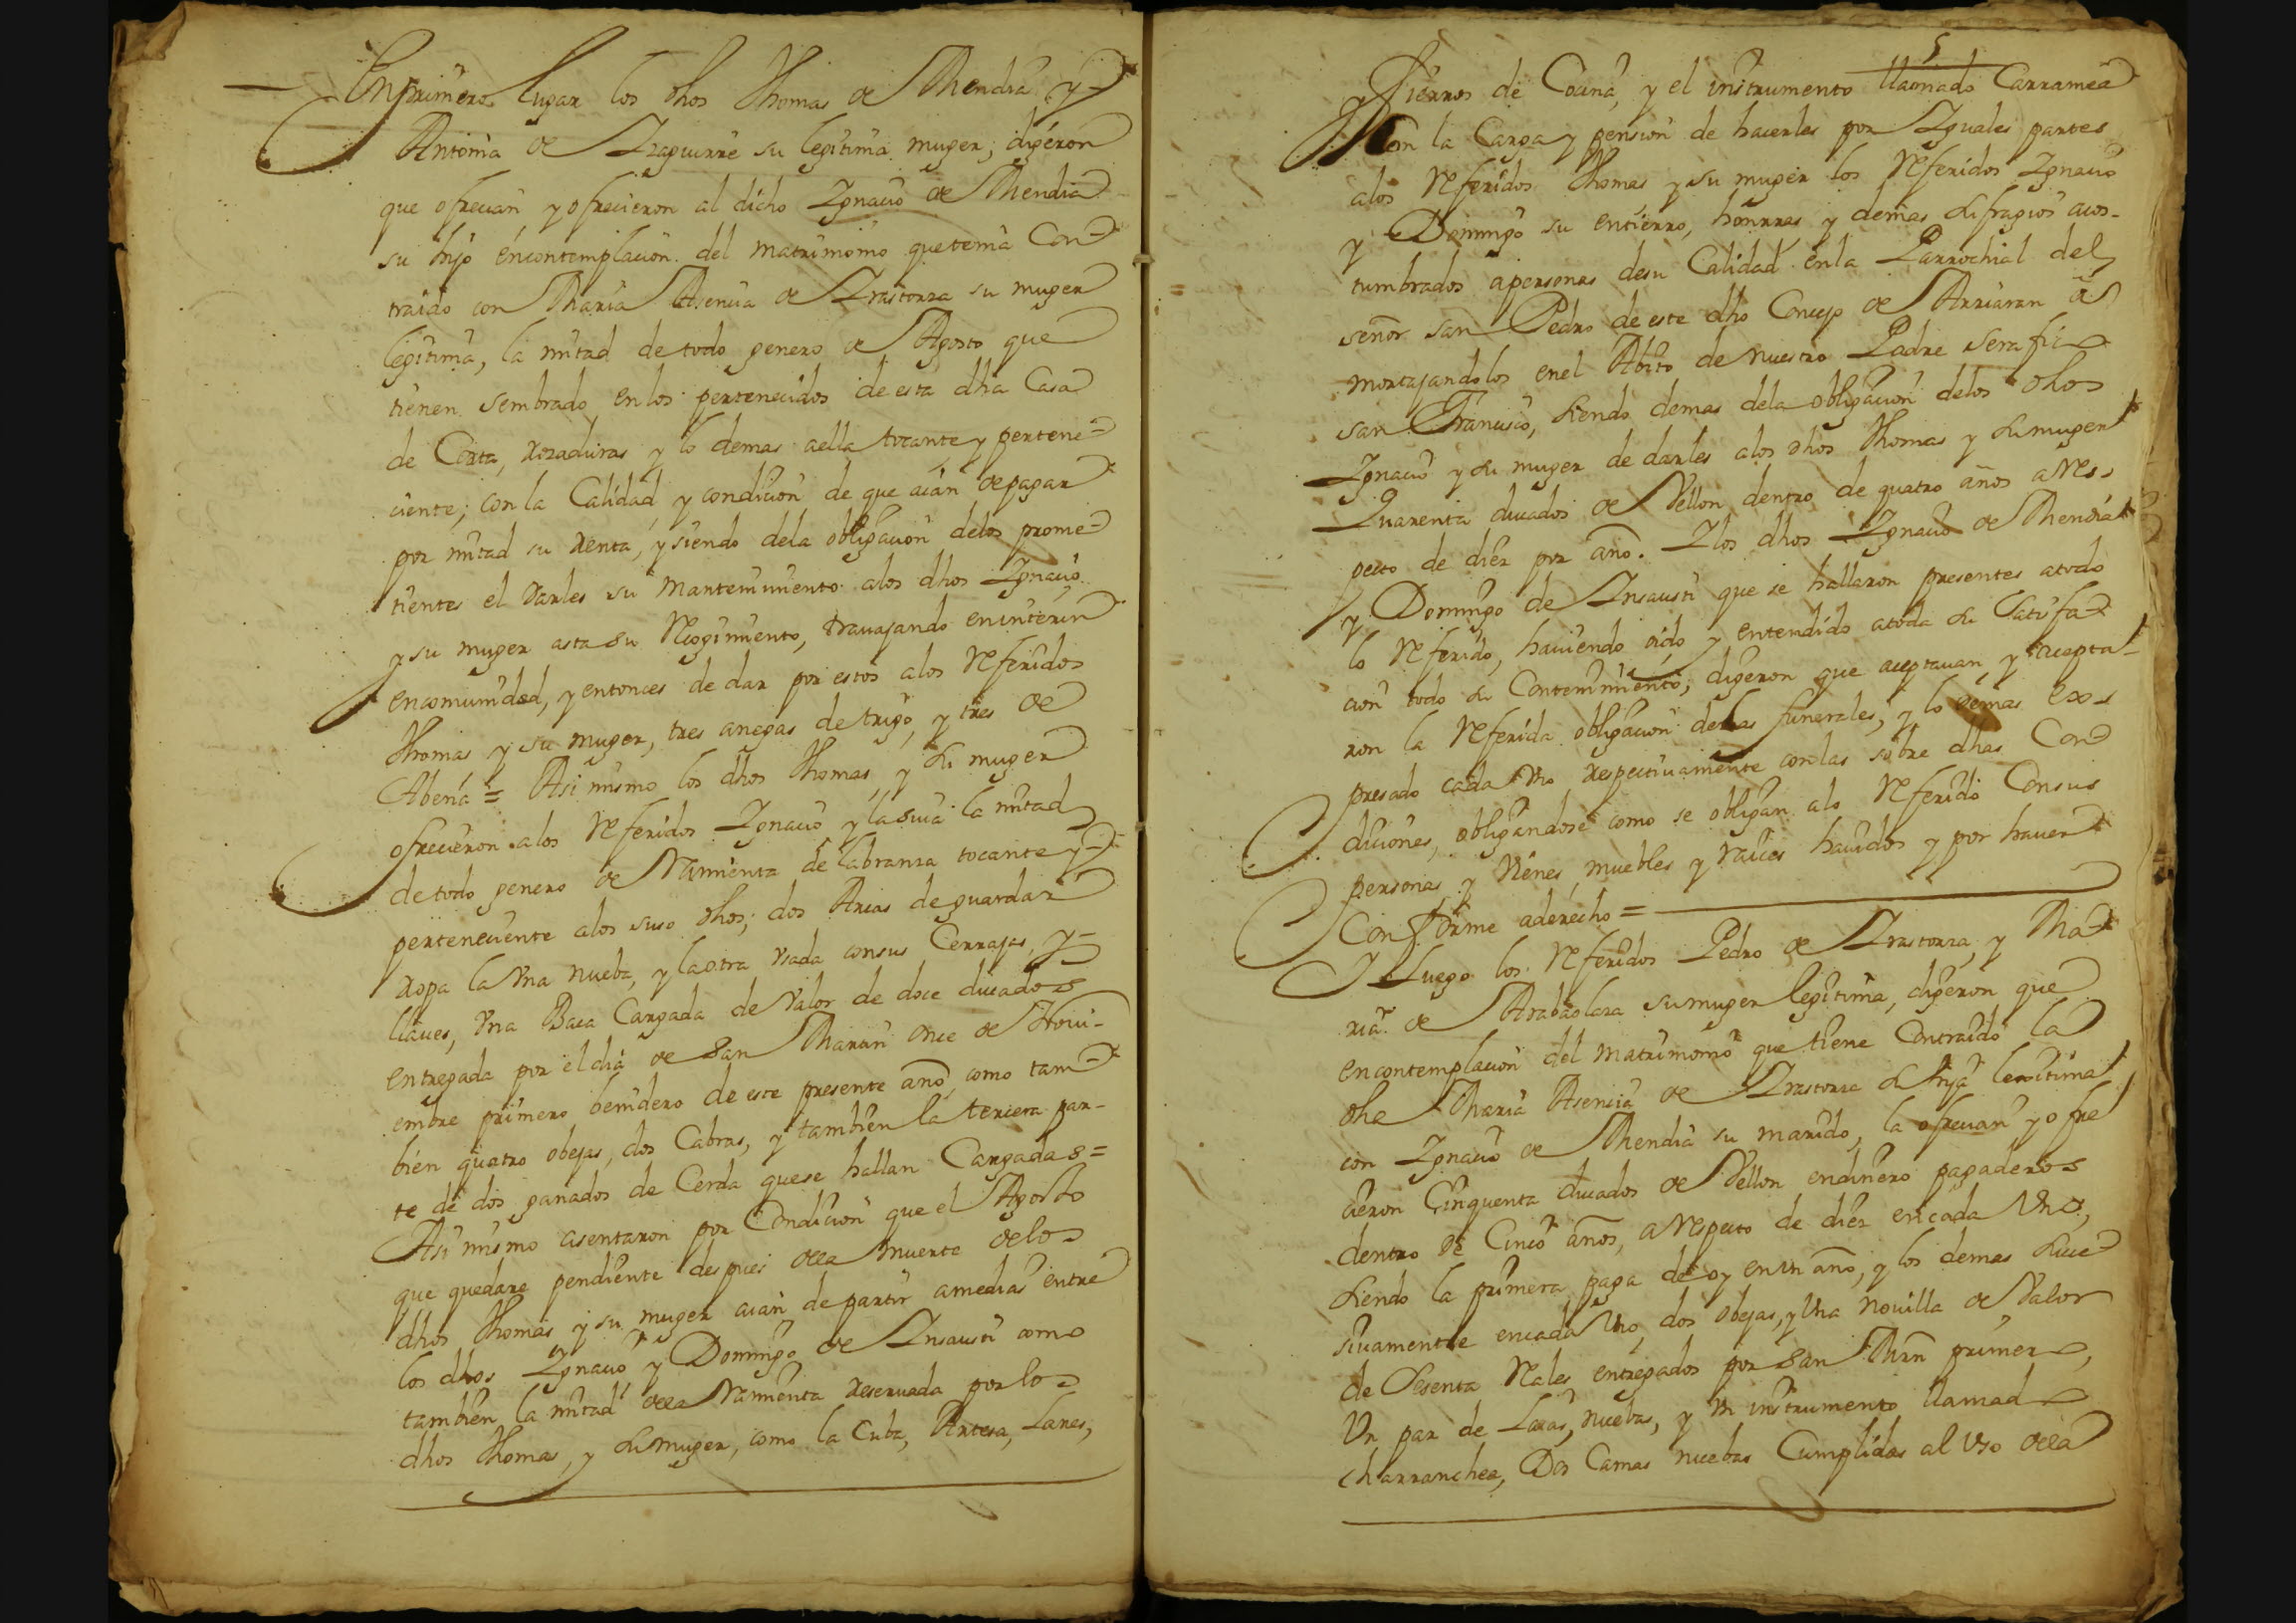 En primero lugar los dhos Thomas de Mendia y
Antonia de Yzaguirre su legitima muger, digeron
que ofrecian y ofrecieron al dicho Ygnacio de Mendia
su hijo encontemplacion del matrimonio que tenia Con-
traido con Maria Asencia de Yrastorza su muger
legitima, la mitad de todo genero de Agosto que
tienen sembrado en los pertenecidos de esta dha Casa
de Corta, rozaduras y lo demas aella tocante y pertene-
ciente; con la Calidad y condicion de que aian de pagar
por mitad su renta, y siendo dela obligacion delos prome-
tientes el darles su mantenimiento alos dhos Ygnacio
y su muger asta su Recogimiento, travajando eninterin
encomunidad, y entonces de dar por estos alos Referidos
Thomas y su muger, tres anegas de trigo, y tres de
Abena = Asi mismo los dhos Thomas, y su muger
ofrecieron alos Referidos Ygnacio y la suia la mitad
de todo genero de Remienta de labranza tocante y
perteneciente alos suso dhos; dos Arcas de guardar
ropa la Vna nueba, y la otra vsada con sus Cerrajas, y
llaues, Vna Baca Cargada de Valor de doce ducados
entregada por el dia de San Martin once de Novi-
embre primero benidero de este presente año, como tam-
bien quatro obejas, dos Cabras, y tambien la tercera par-
te de dos ganados de Cerda que se hallan Cargadas =
Asi mismo asentaron por Condicion que el Agosto
que quedare pendiente despues dela muerte delos
dhos Thomas y su muger aian de partir amedias entre
los dhos Ygnacio y Domingo de Ynsausti como
tambien la mitad dela Remienta reseruada por los
dhos Thomas, y su muger, como la Cuba, Artesa, Lares,
5
fierros de Cocina, y el instrumento llamado Carramea
Con la Carga y pension de hacerles por Yguales partes
alos Referidos Thomas y su muger los Referidos Ygnacio
y Domingo su entierro, honrras y demas sufragios acos-
tumbrados apersonas desu Calidad en la Parrochial del
señor san Pedro de este dho Concejo de Arriaran a
mortajandolos enel Abito de nuestro Padre serafico
san Francisco, siendo demas dela obligacion delos dhos
Ygnacio y su muger de darles alos dhos Thomas y su muger
Quarenta ducados de Vellon dentro de quatro años a Res-
pecto de diez por año. Ylos dhos Ygnacio de Mendia
y Domingo de Ynsausti que se hallaron presentes atodo
lo Referido, hauiendo oido y entendido atoda su Satisfa-
cion todo su Contenimiento, digeron que aceptauan y acepta-
ron la Referida obligacion delos funerales, y lo demas ex-
presado cada Vno respectiuamente con las sobre dhas Con-
diciones, obligandose como se obligan alo Referido Consus
personas y Vienes muebles y raices hauidos y por hauer
Conforme aderecho =
Y Luego los Referidos Pedro de Yrastorza, y Ma-
ria de Arabaolaza su muger legitima, digeron que
encontemplacion del matrimonio que tiene Contraido la
dha Maria Asencia de Yrastorza su hija legitima
con Ygnacio de Mendia su marido, la ofrecian y ofre
cieron Cinquenta ducados de Vellon endinero pagaderos
dentro de Cinco años, a Respecto de diez encada Vno,
siendo la primera paga de oy en Vn año, y los demas suce-
siuamente encada Vno, dos obejas, y Vna nouilla de Valor
de Sesenta Reales entregados por San Mrn primero,
Vn par de Laias, nuebas, y Vn instrumento llamado
charranchea, Dos Camas nuebas Cumplidas al Vso dela